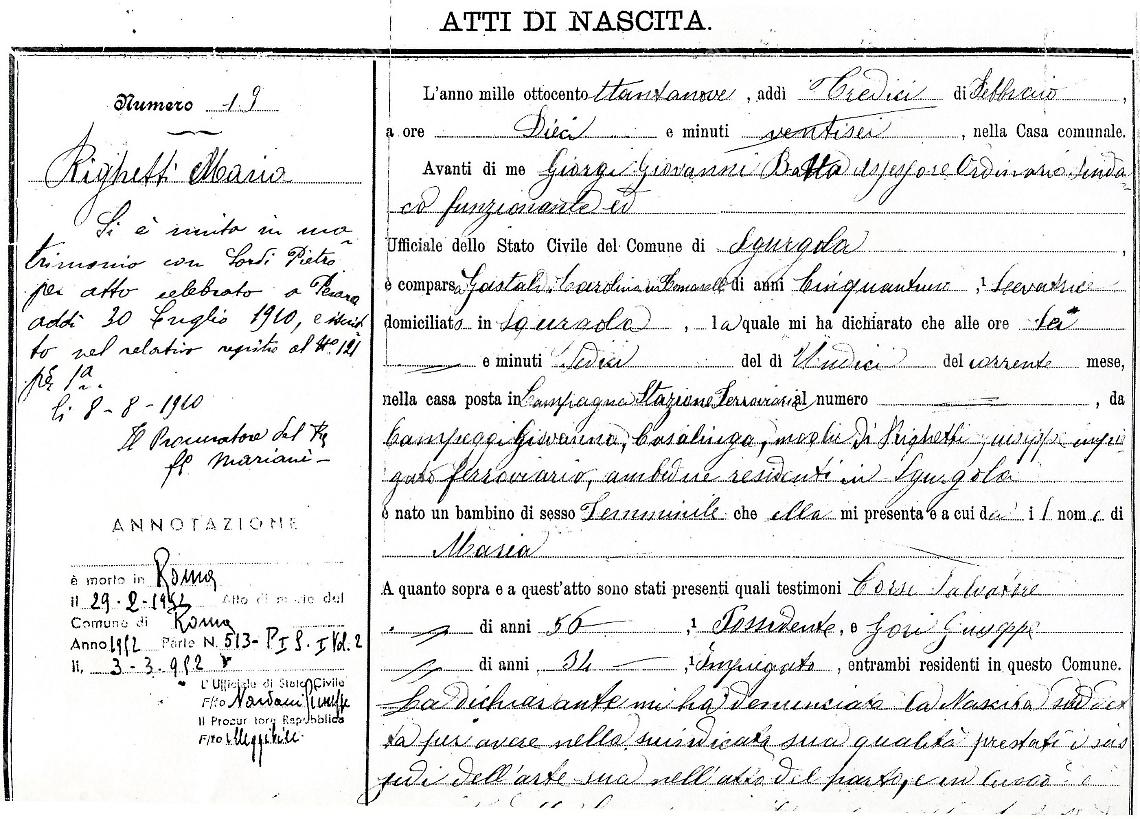 ATTI DI NASCITA.
Numero 19
Righetti Maria
Si è unita in ma-
trimonio con Lordi Pietro
per atto celebrato a
addì 30 Luglio 1910, e
to nel relativo registro al N.° 121
p. I a.
li 8-8-1910
Il Procuratore del Re
ff. Mariani
ANNOTAZIONE
è morto in Roma
il 29-2-1952 Atto di morte del
Comune di Roma
Anno 1952 Parte N. 513- P I S. I Vol. 2
li, 3-3-952
L'Ufficiale di Stato Civile
F/to Nardani Giuseppe
Il Procur tore Repubblica
F/to illeggibile
L'anno mille ottocento ttantanove, addì Tredici di Febbraio,
a ore Dieci e minuti ventisei, nella Casa comunale.
Avanti di me Giorgi Giovanni Batta assessore Ordinario Sinda-
co funzionante ed
Ufficiale dello Stato Civile del Comune di Sgurgola
è comparsa Gastaldi Carolina di anni Cinquantuno, Levatrice
domiciliata in Sgurgola, la quale mi ha dichiarato che alle ore sei
e minuti Sedici del dì Undici del corrente mese,
nella casa posta in Campagna Stazione Ferroviaria al numero , da
Campeggi Giovanna, Casalinga, moglie di Righetti Giuseppe impie
gato ferroviario, ambidue residenti in Sgurgola
è nato un bambino di sesso Femminile che ella mi presenta e a cui dà il nome di
Maria
A quanto sopra e a quest'atto sono stati presenti quali testimoni Corsi Salvatore
di anni 56, Possidente, e Gori Giuseppe
di anni 34, Impiegato, entrambi residenti in questo Comune.
La dichiarante mi ha denunciato la Nascita suddet
ta per avere nella suindicata sua qualità prestati i sus
sidi dell'arte sua nell'atto del parto, e in